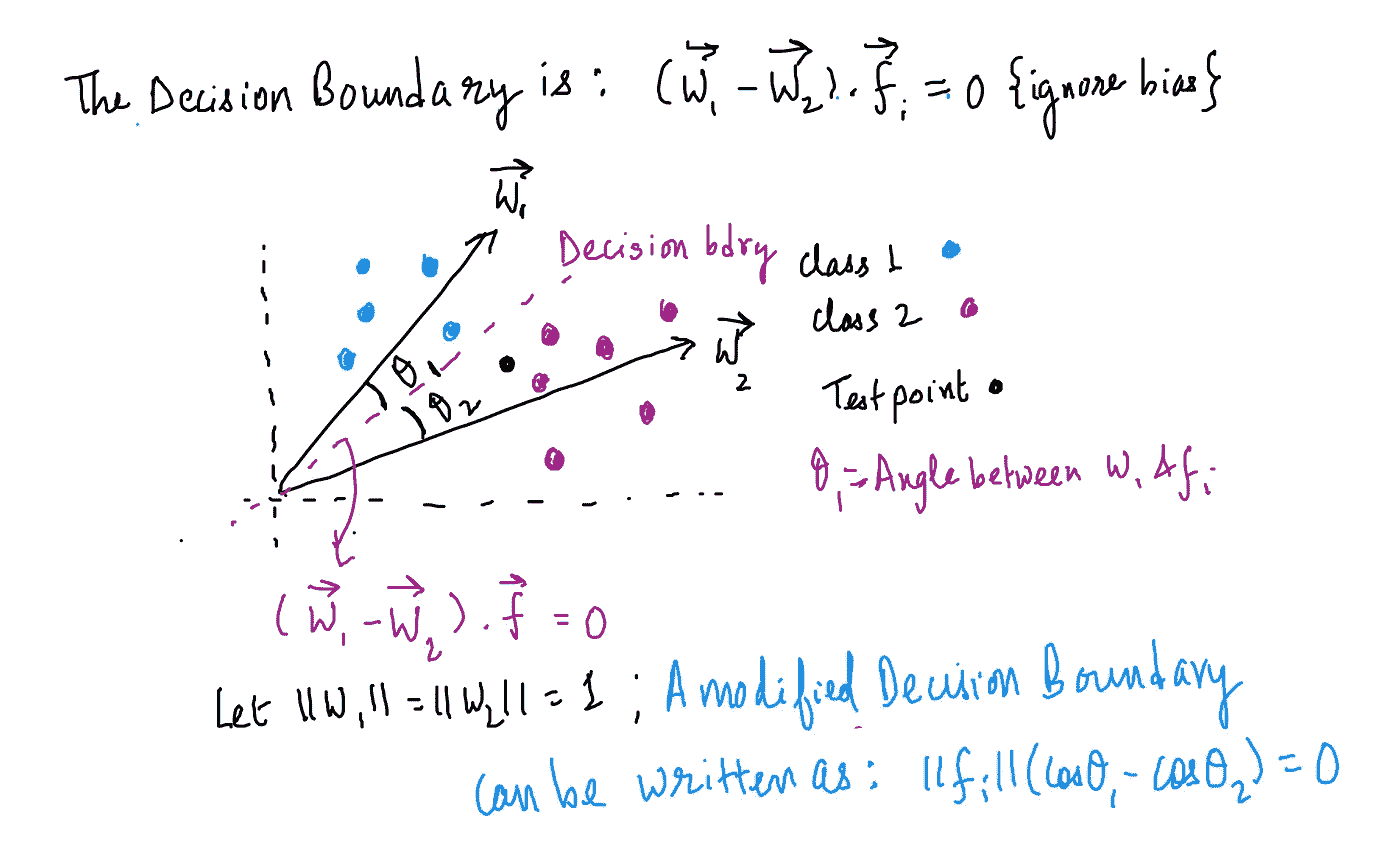 The Decision Boundary is : (W₁ - W₂) . fᵢ = 0 {ignore bias}
W₁
Decision bdry
class 1
class 2
W₂
θ₁
θ₂
Test point
θ₁ = Angle between W₁ & fᵢ
(W₁ - W₂) . f = 0
Let ||W₁|| = ||W₂|| = 1 ; A modified Decision Boundary
can be written as : ||fᵢ|| (cosθ₁ - cosθ₂) = 0